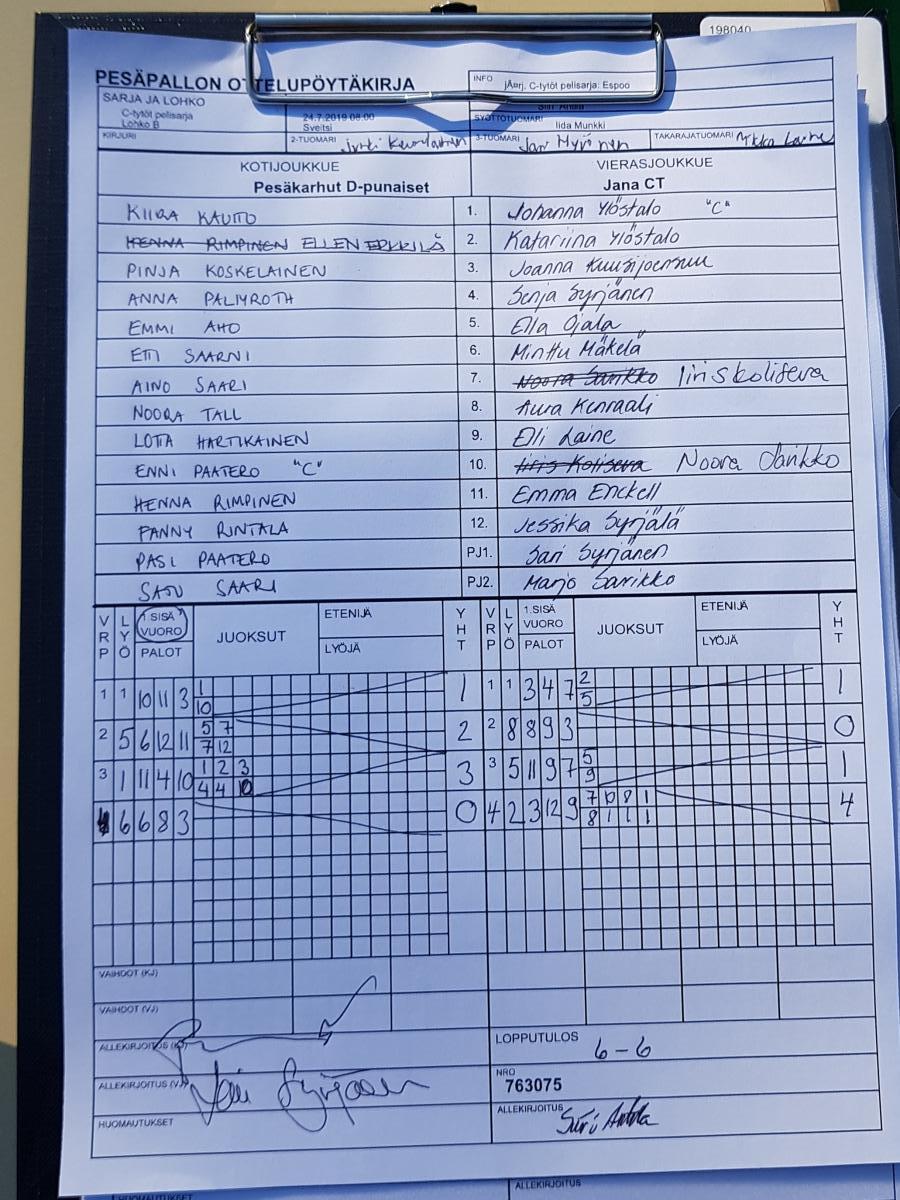 198040
PESÄPALLON OTTELUPÖYTÄKIRJA
INFO jÄerj. C-tytöt pelisarja: Espoo
SARJA JA LOHKO
C-tytöt pelisarja
Lohko B
24.7.2019 08:00
Sveitsi
SYÖTTÖTUOMARI
Iida Munkki
KIRJURI 2-TUOMARI 3-TUOMARI Jari Myrinen TAKARAJATUOMARI
KOTIJOUKKUE VIERASJOUKKUE
Pesäkarhut D-punaiset Jana CT
KIIRA KAUTTO 1. Johanna Ylöstalo "C"
HENNA RIMPINEN ELLEN ERKKILÄ 2. Katariina Ylöstalo
PINJA KOSKELAINEN 3. Joanna Kuusijoensuu
ANNA PALMROTH 4. Senja Syrjänen
EMMI AHO 5. Ella Ojala
ETTI SAARNI 6. Minttu Mäkelä
AINO SAARI 7. Noora Sarikko Iiris Koliseva
NOORA TALL 8. Aura Kenraali
LOTTA HARTIKAINEN 9. Elli Laine
ENNI PAATERO "C" 10. Iiris Koliseva Noora Sarikko
HENNA RIMPINEN 11. Emma Enckell
FANNY RINTALA 12. Jessika Syrjälä
PASI PAATERO PJ1. Sari Syrjänen
SATU SAARI PJ2. Marjo Sarikko
VRP LYÖ 1.SISÄ VUORO PALOT JUOKSUT ETENIJÄ LYÖJÄ YHT VRP LYÖ 1.SISÄ VUORO PALOT JUOKSUT ETENIJÄ LYÖJÄ YHT
1 1 10 11 3 1 1 1 1 3 4 7 2 1
10 5
2 5 6 12 11 5 7 2 2 8 8 9 3 0
7 12
3 1 11 4 10 1 2 3 3 3 5 11 9 7 5 1
4 4 10 9
4 6 6 8 3 0 4 2 3 12 9 7 10 8 1 4
8 1 1 1
VAIHDOT (KJ)
VAIHDOT (VJ)
ALLEKIRJOITUS (KJ) LOPPUTULOS 6-6
ALLEKIRJOITUS (VJ) NRO
763075
HUOMAUTUKSET ALLEKIRJOITUS
HUOMAUTUKSET ALLEKIRJOITUS